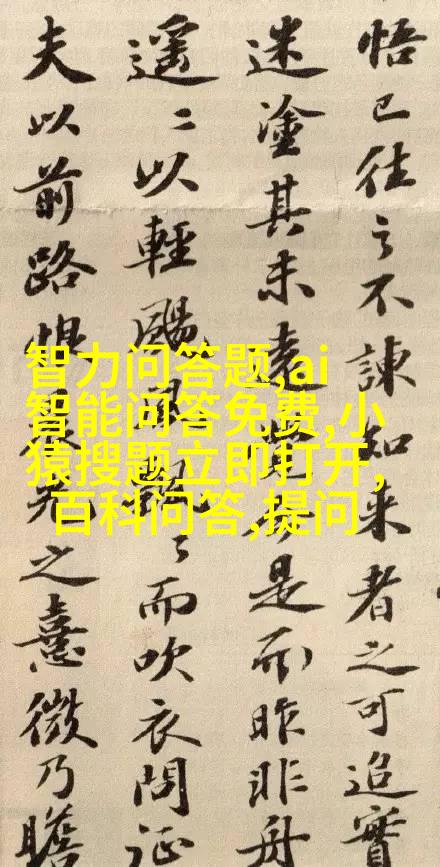 悟已往之不諫知来者之可追實
迷塗其未遠覺今是而昨非舟
遥〻以輕颺風飄〻而吹衣問証
夫以前路恨晨光之熹微乃瞻
智力问答题,ai
智能问答免费,小
猿搜题立即打开,
百科问答,提问